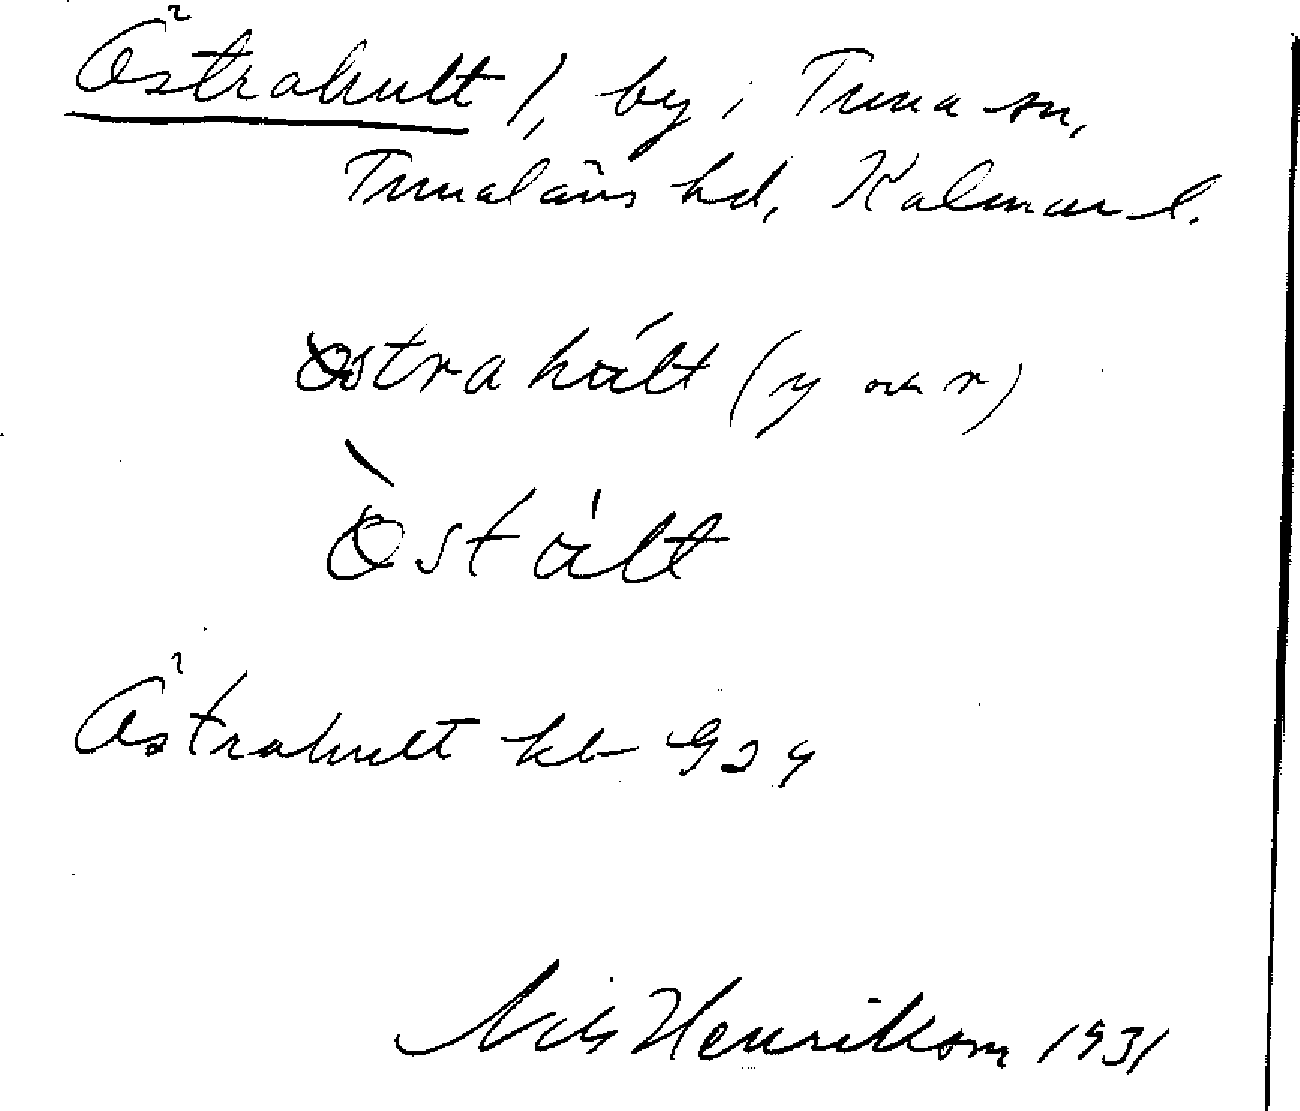 Östrahult /, by i Tuna sn,
Tunaläns hd, Kalmar l.
östrahùlt (y och r)
Östùlt
Östrahult kb 929
Nils Henrikson 1931